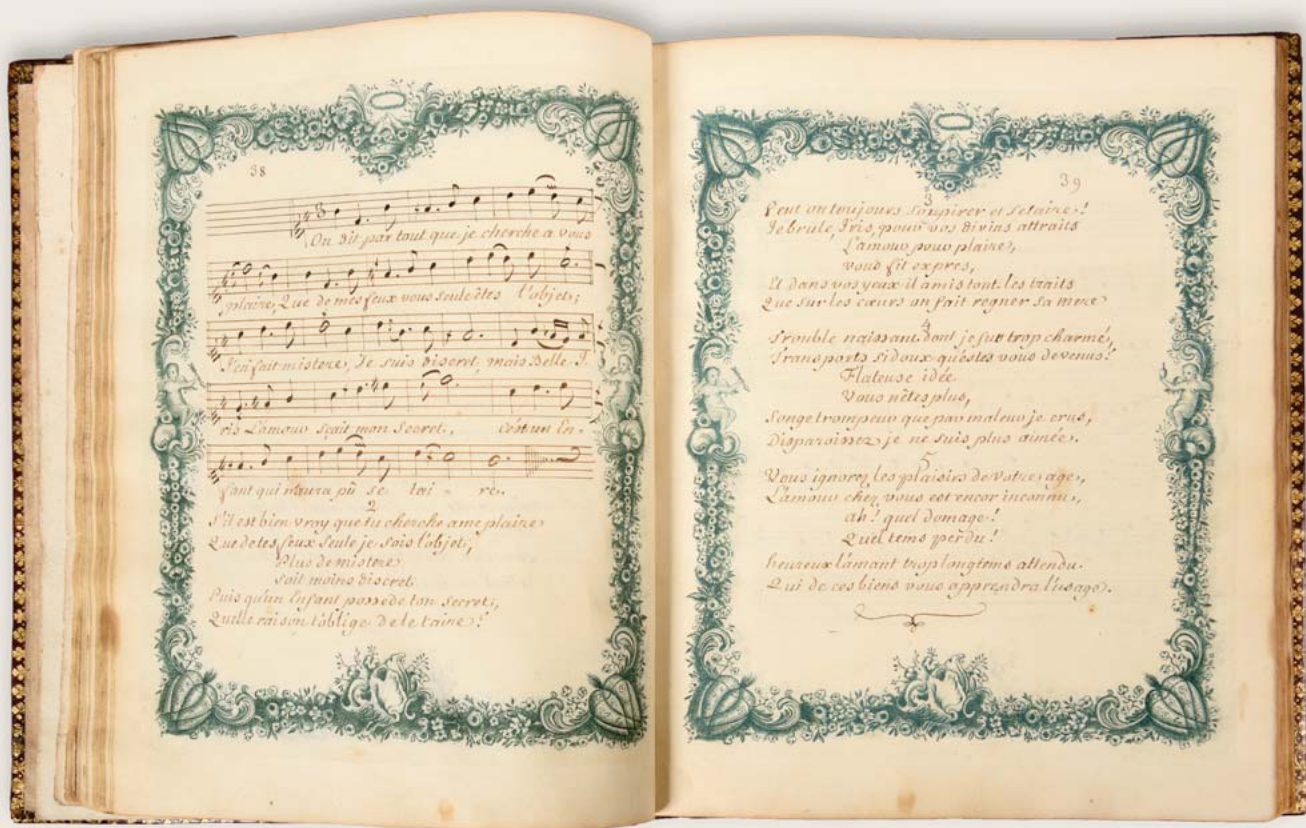 38
3
On dit par tout que je cherche a vous
plaire, Que de mes feux vous seule êtes l'objet;
J'en fait mistere, Je suis discret, mais Belle I-
ris L'amour sçait mon secret, C'est un En-
fant qui n'aura pû se tai - re.
2
S'il est bien vray que tu cherche a me plaire
Que de tes feux seule je sois l'objet,
Plus de mistere
soit moins discret
Puis qu'un Enfant possede ton secret,
Quelle raison t'oblige de le taire!
39
3
Peut on toujours soupirer et se taire!
Je brule, Iris, pour vos divins attraits
L'amour pour plaire,
vous fit expres,
Et dans vos yeux il a mis tout les traits
Que sur les cœurs on fait regner sa mere
4
Trouble naissant dont je fut trop charmé,
Transports si doux qu'estes vous devenus!
Flateuse idée
Vous n'êtes plus,
Songe trompeur que par maleur je crus,
Disparoissez je ne suis plus aimée.
5
Vous ignorez les plaisirs de votre age,
L'amour chez vous est encor inconnu,
ah! quel domage!
Quel tems perdu!
heureux l'amant trop longtems attendu.
Qui de ces biens vous apprendra l'usage.